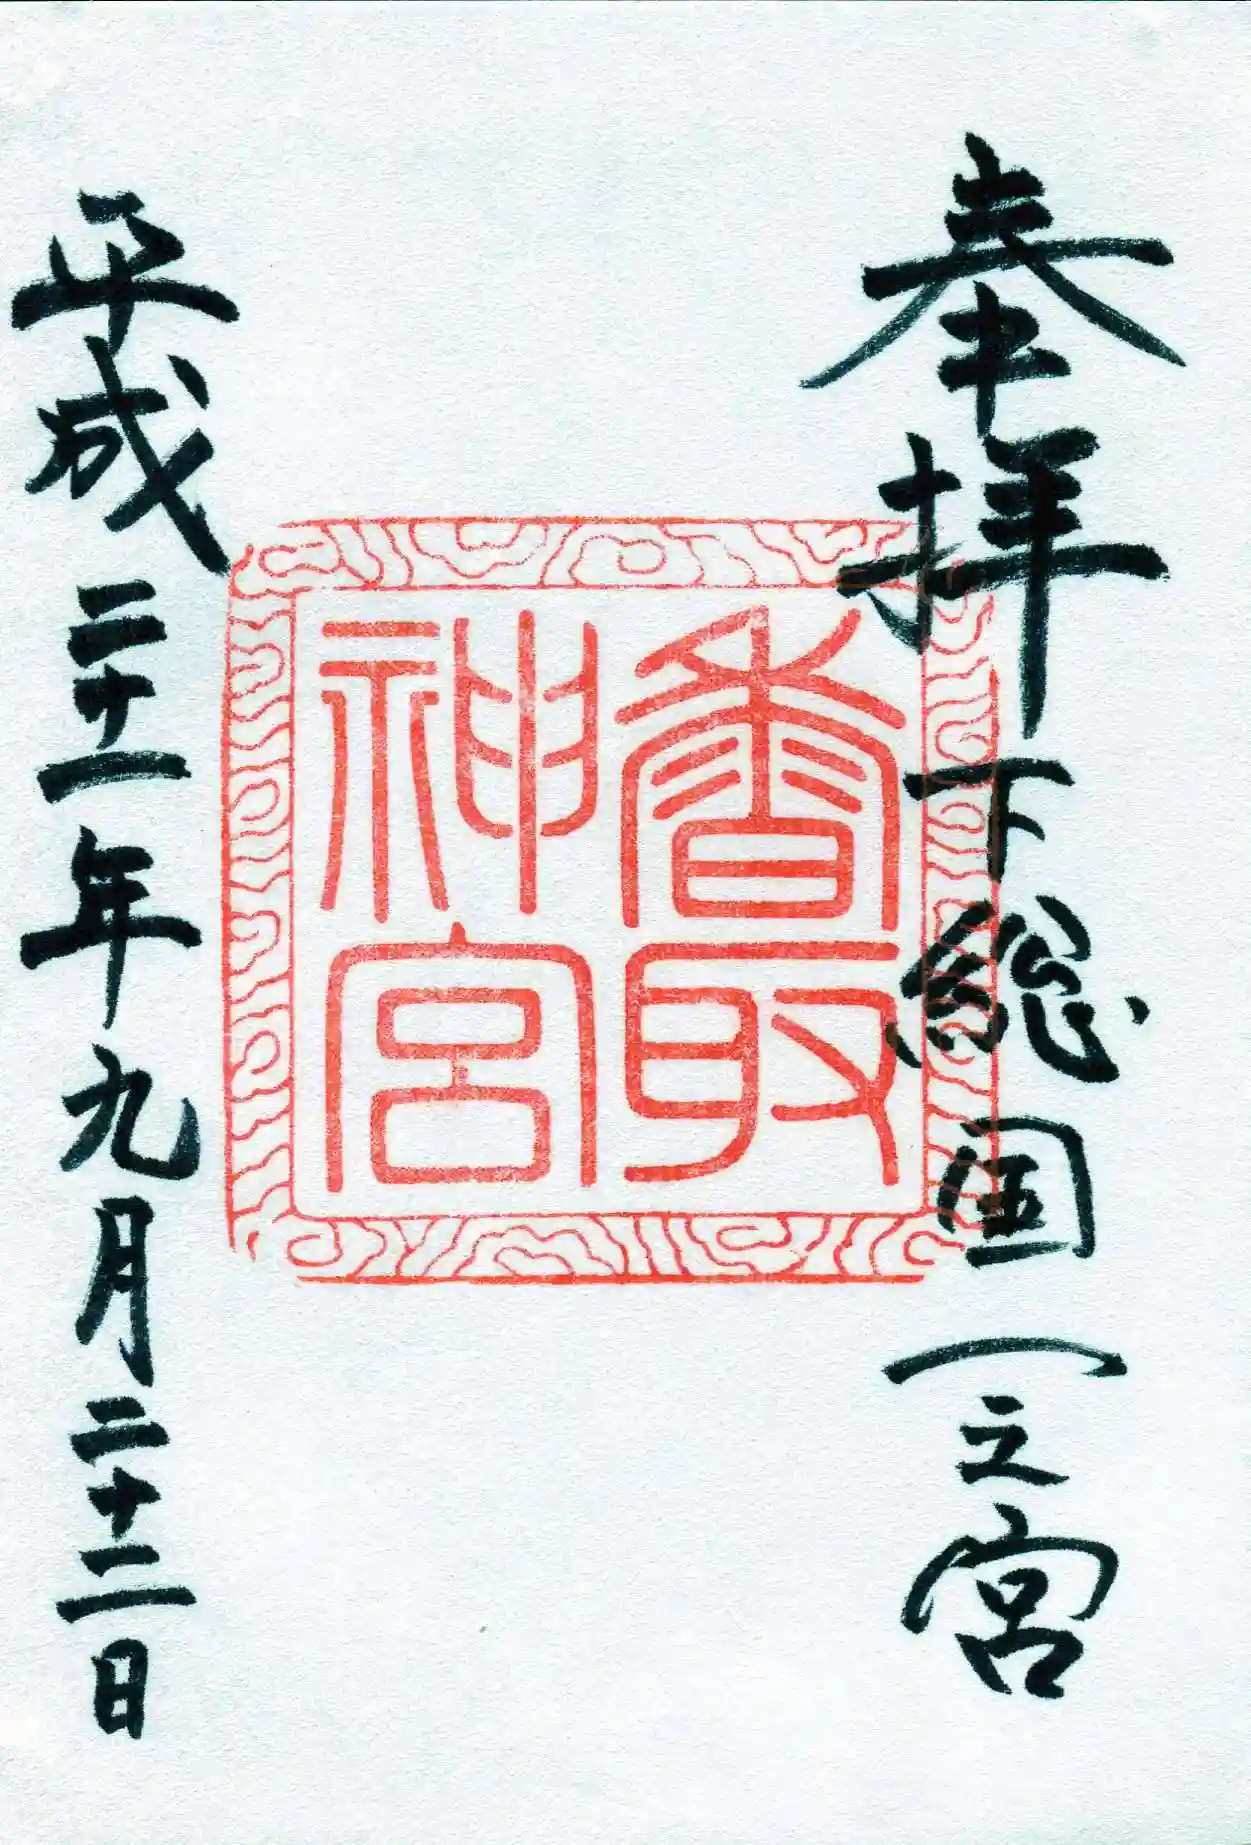 奉拝
下総国一之宮
香取
神宮
平成二十一年九月二十二日